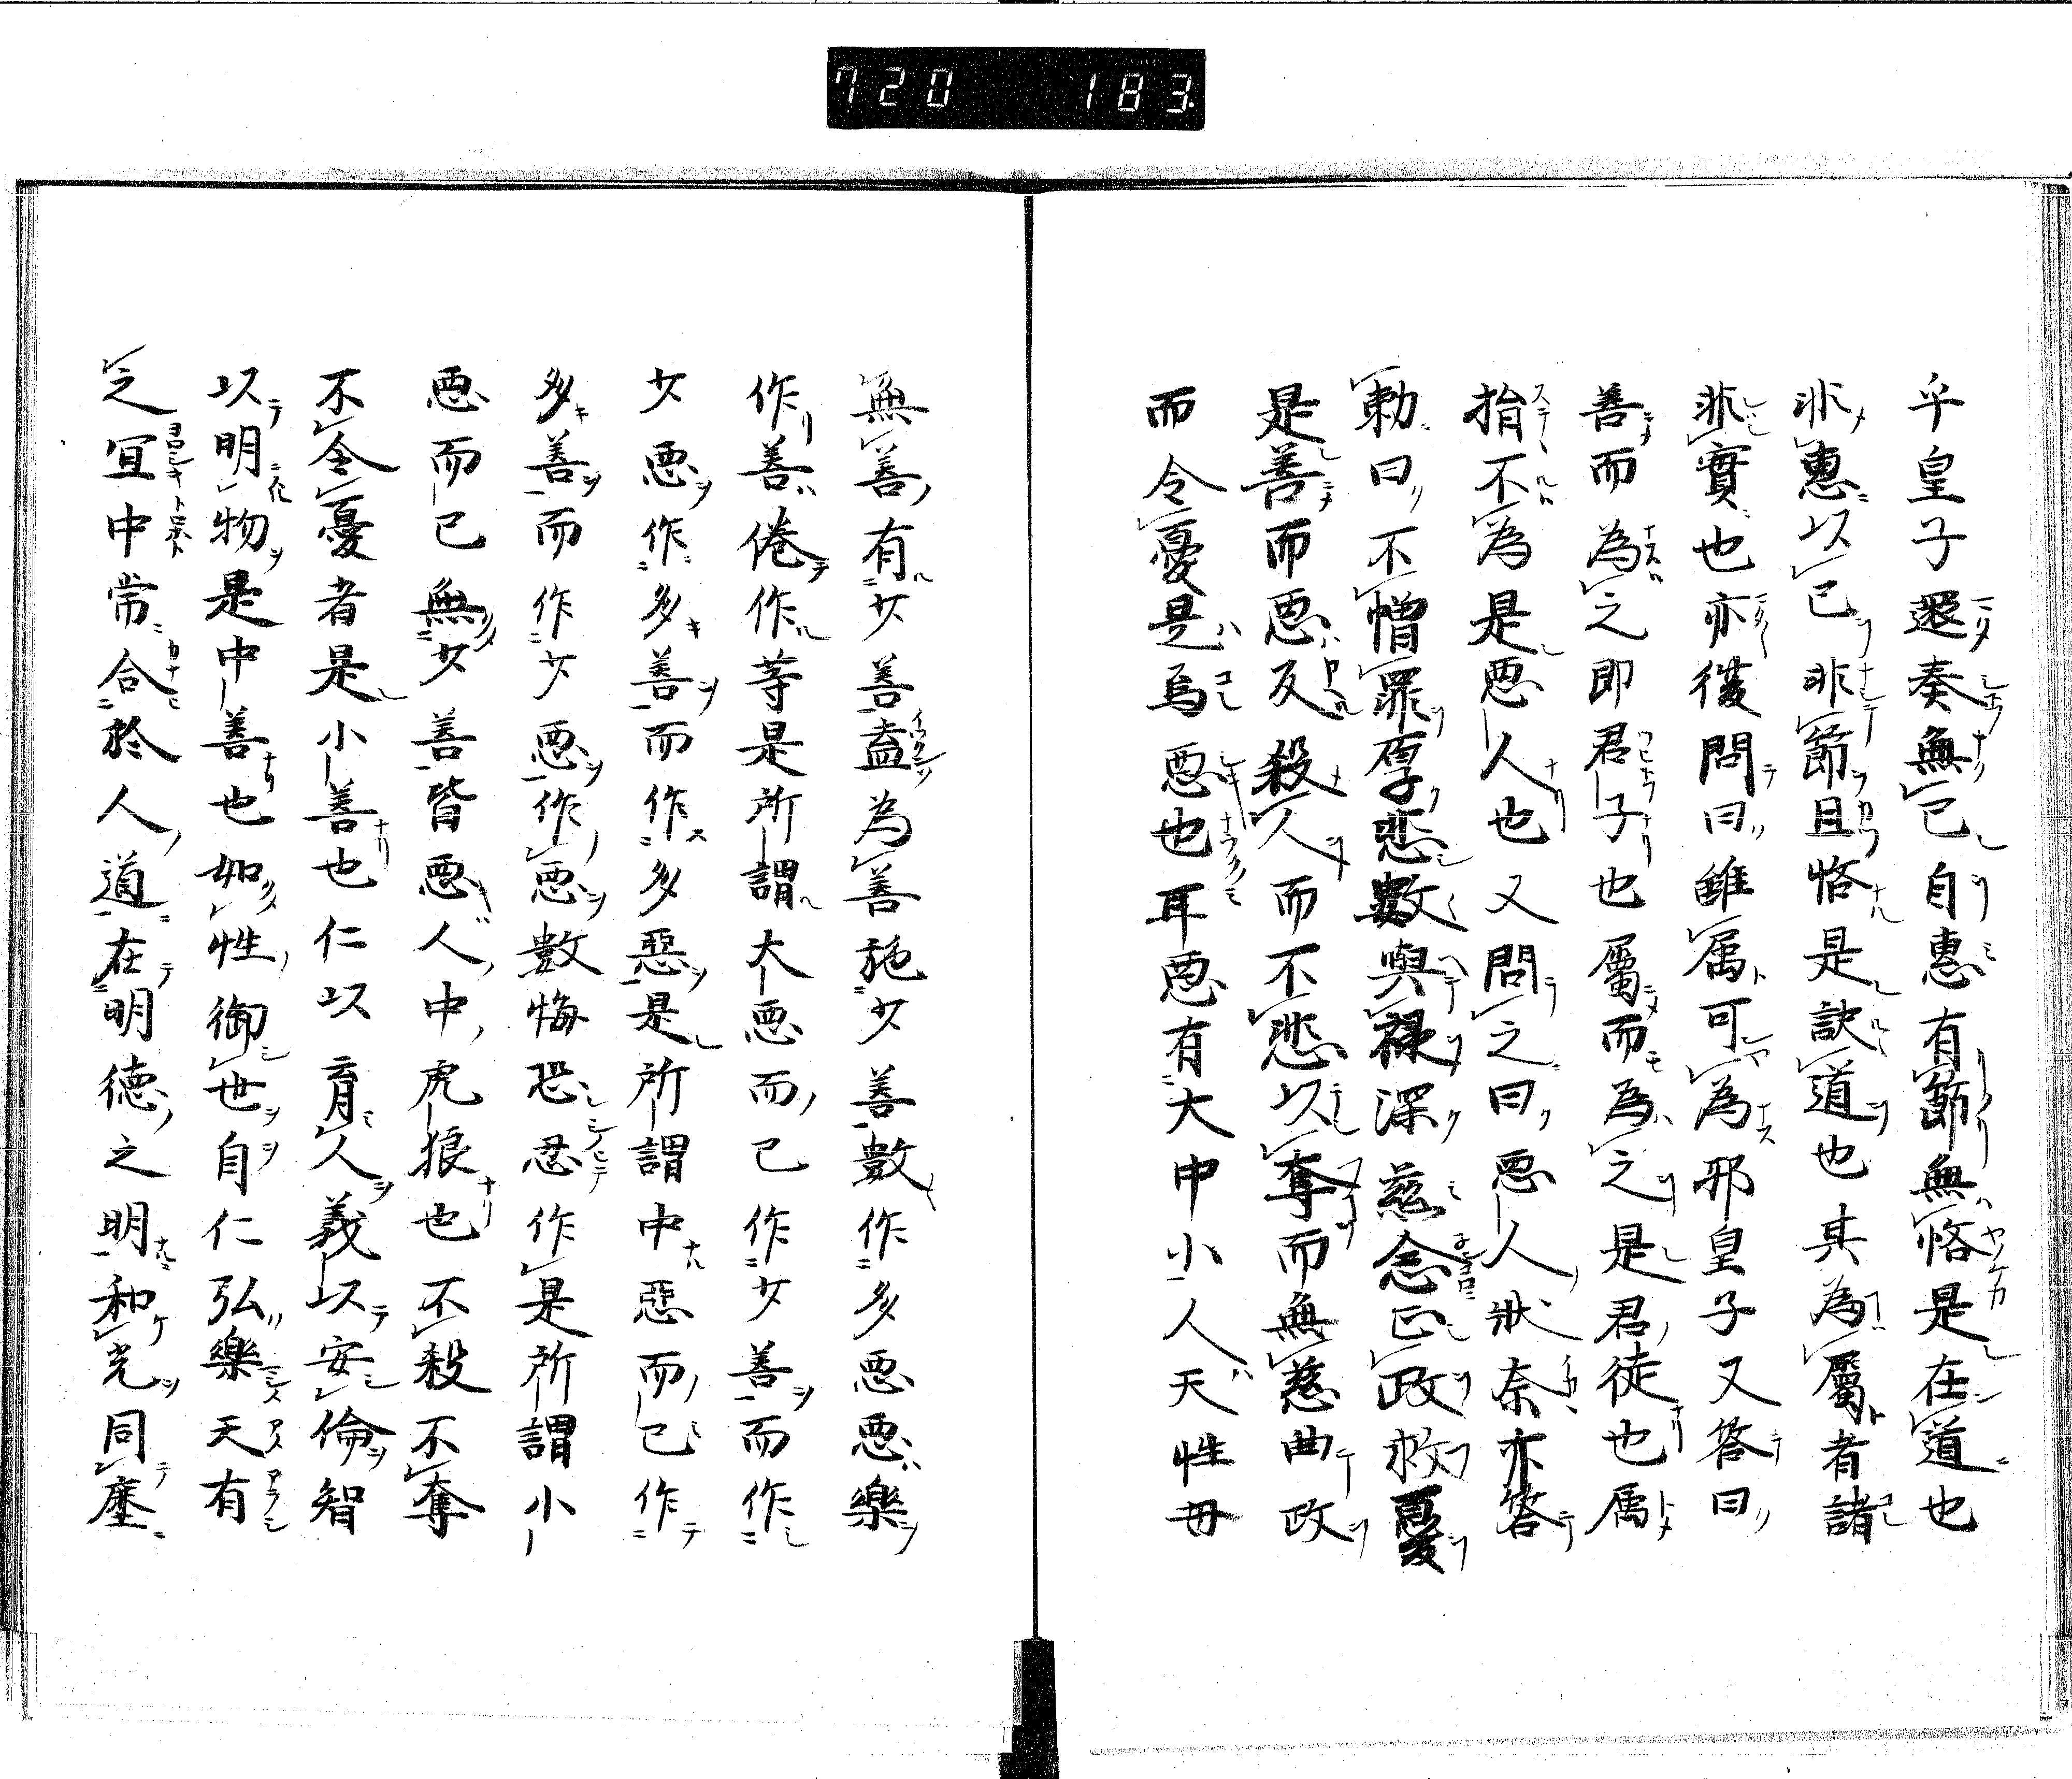 720 183
乎皇子還奏無已自惠有節無悋是在道也
非惠以已非節且悋是訣道也其為屬者諸
非實也亦復問曰雖属可為邪皇子又答曰
善而為之即君子也屬而為之是君徒也属
捐不為是悪人也又問之曰悪人状奈亦答
勅曰不憎罪厚悲數與禄深慈念正政救憂
是善而悪反殺人而不悲以奪而無慈曲政
而令憂是烏悪也耳悪有大中小人天性毋
無善有少善盍為善施少善數作多悪悪樂
作善倦作等是所謂大悪而已作少善而作
少悪作多善而作多惡是所謂中惡而已作
多善而作少悪作悪數悔恐忍作是所謂小
悪而已無少善皆悪人中虎狼也不殺不奪
不令憂者是小善也仁以育人義以安倫智
以明物是中善也如性御世自仁弘樂天有
之宜中常合於人道在明徳之明和光同塵